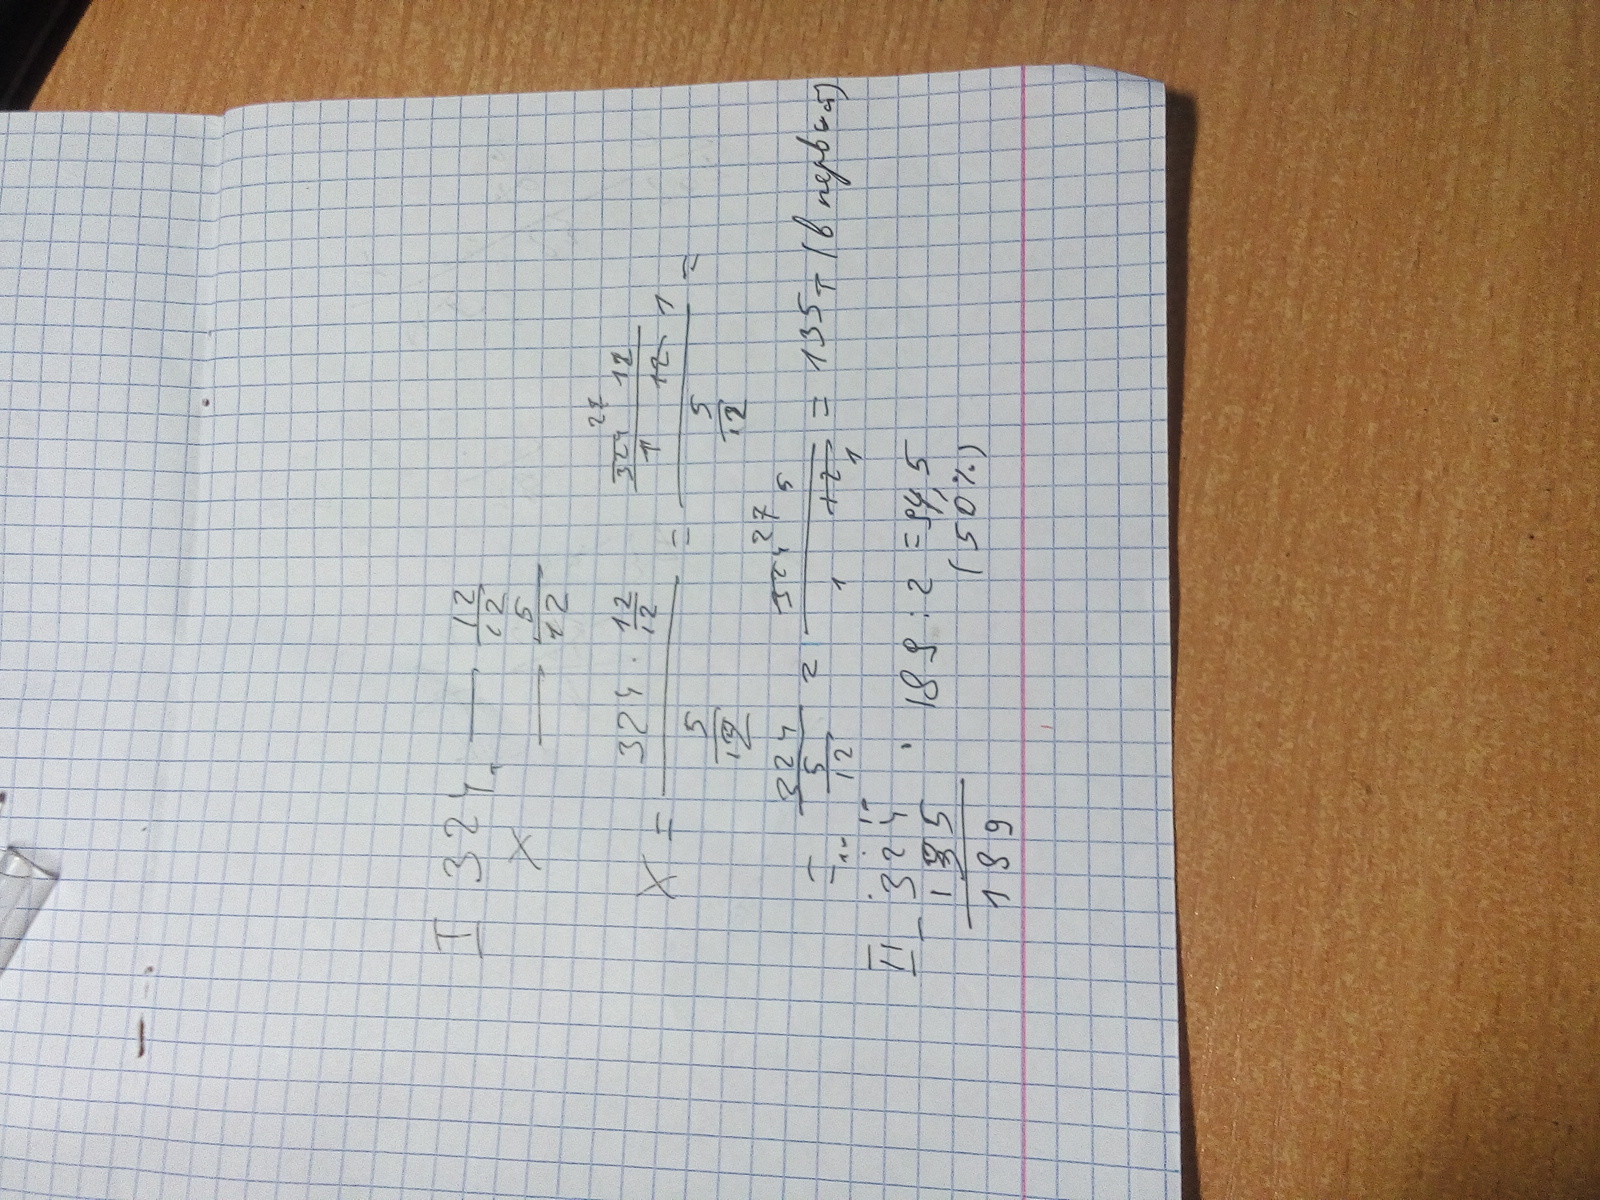 I 324т — 12/12
x — 5/12
x = 324 · 12/12 / 5/12 = 324 27 12 / 1 12 1 / 5/12 =
= 324 / 5/12 = 324 27 5 / 1 12 1 = 135т (в первый)
II 324 - 135 = 189
189 : 2 = 94,5
(50%)